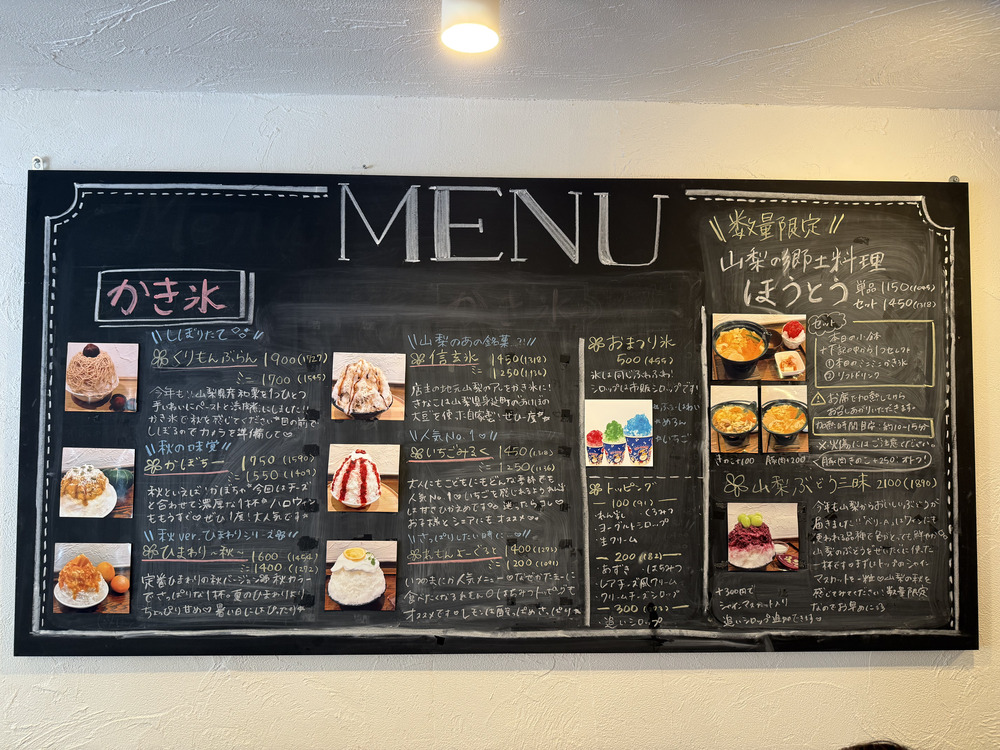 MENU
かき氷
\\しぼりたて//
くりもんぶらん 1900(1727)
ミニ 1700(1545)
今年も山梨県産和栗を1つひとつ
手
かき氷で秋を感じてください 目の前で
しぼるのでカメラを準備して♡
\\秋の味覚//
かぼちー 1750(1590)
ミニ 1550(1409)
秋といえば!かぼちゃ 今回はチーズ
と合わせて濃厚な1杯 ハロウィン
ももうすぐ ぜひ1度!大人気です
\\秋ver. ひまわりシリーズ//
ひまわり〜秋〜 1600(1454)
ミニ 1400(1272)
定番ひまわりの秋バージョン 秋カラー
でさっぱりな1杯 夏のひまわりより
ちょっぴり甘め♡暑い日にはぴったり
\\山梨のあの銘菓…?!//
信玄氷 1450(1318)
ミニ 1250(1136)
店主の地元山梨のアレをかき氷に!
きなこは山梨県身延町のあけぼの
大豆を使 自家 ぜひ一度
\\人気No.1♡//
いちごみるく 1450(1318)
ミニ 1250(1136)
大人にもこどもにもどんな年齢でも
人気No.1 いちごを感じれるよう
は甘さひかえめです 迷ったらコレ
お子様とシェアにもオススメ
\\さっぱりしたい時に//
れもんよーぐると 1400(1273)
ミニ 1200(1091)
いつの
食べたくなるれもん はちみつトッピング
オススメです レモンは
おまつり氷
500(455)
氷は同じふわふわ!
シロップは市販シロップです!
ぶるーはわい
めろん
いちご
トッピング
100(91)
・れんにゅう ・くるみ
・ヨーグルトシロップ
・生クリーム
200(182)
・あずき ・はちみつ
・レアチーズ風クリーム
・クリームチーズシロップ
300
・追いシロップ
\\数量限定//
山梨の郷土料理
ほうとう 単品 1150(1045)
セット 1450(1318)
セット
本日の小鉢
+下記の中から1つセレクト
①本日の かき氷
②ソフトドリンク
⚠お席で加熱してから
お召しあがりいただきます。
加熱時間目安:約10〜15分
※火傷にはご注意ください。
きのこ+100 豚肉+200
豚肉きのこ+250:オトク!
山梨ぶどう三昧 2100(1890)
今年も山梨からおいしいぶどうが
届きました!
使われる品種で
山梨のぶどうをぜいたくに使った
一杯です
マスカットを一粒♡山梨の秋を
感じてみてください 数量限定
なのでお早めに
+300円で
シャインマスカット入り
追いシロップ追加できます♡